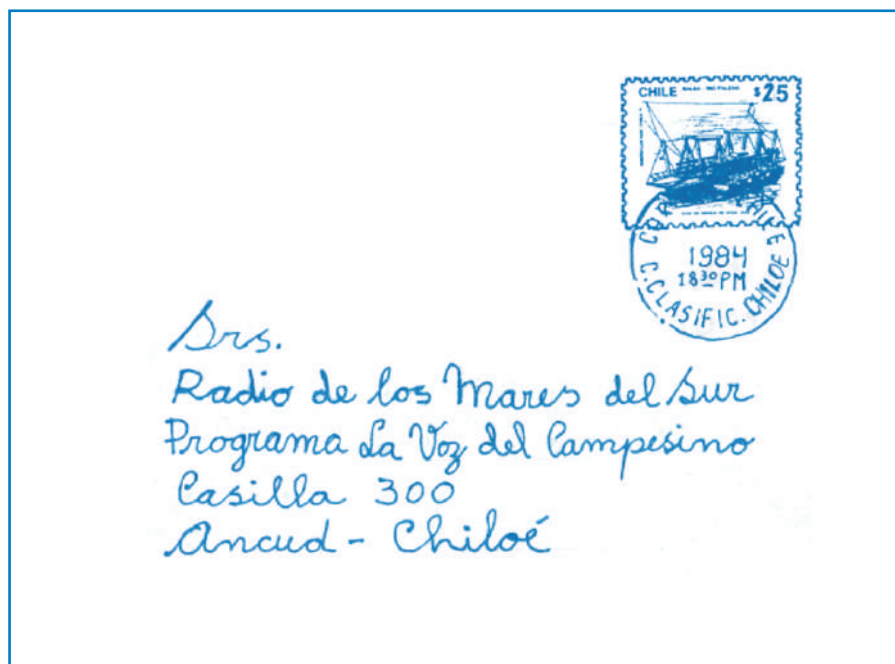 CHILE $25
CORREOS CHILE
1984
18³⁰PM
C.CLASIFIC. CHILOE
Srs.
Radio de los Mares del Sur
Programa La Voz del Campesino
Casilla 300
Ancud - Chiloé